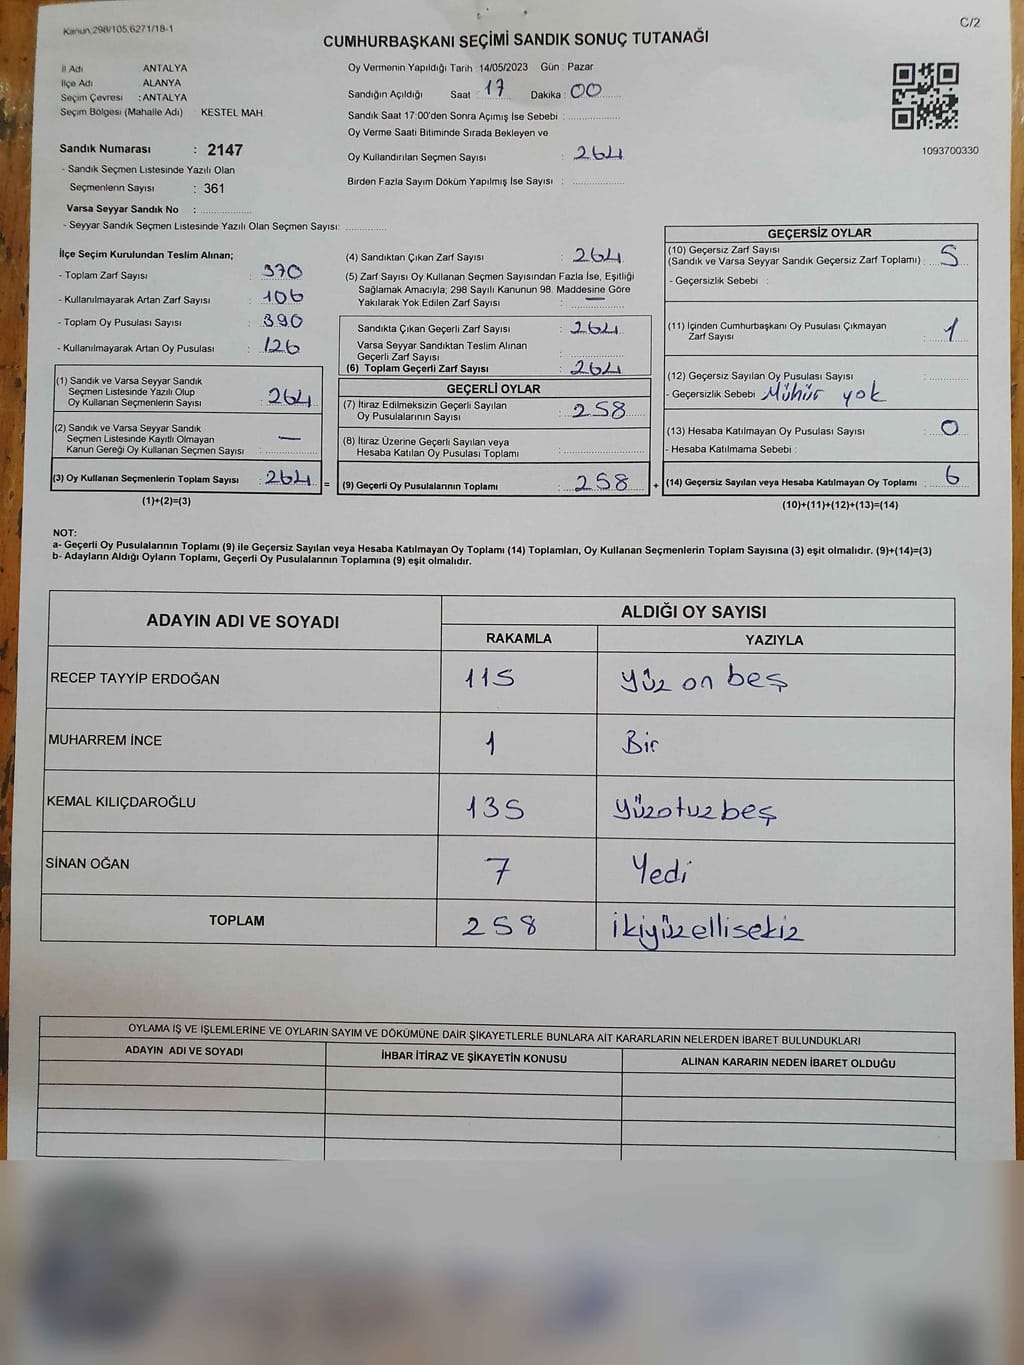 Kanun,298/105,6271/18-1
C/2
CUMHURBAŞKANI SEÇİMİ SANDIK SONUÇ TUTANAĞI
İl Adı ANTALYA
İlçe Adı ALANYA
Seçim Çevresi : ANTALYA
Seçim Bölgesi (Mahalle Adı) KESTEL MAH.
Sandık Numarası : 2147
- Sandık Seçmen Listesinde Yazılı Olan
Seçmenlerin Sayısı : 361
Varsa Seyyar Sandık No : ..................
- Seyyar Sandık Seçmen Listesinde Yazılı Olan Seçmen Sayısı: ..............
Oy Vermenin Yapıldığı Tarih 14/05/2023 Gün : Pazar
Sandığın Açıldığı Saat : 17 Dakika : 00
Sandık Saat 17:00'den Sonra Açımış İse Sebebi : ..................
Oy Verme Saati Bitiminde Sırada Bekleyen ve
Oy Kullandırılan Seçmen Sayısı : 264
Birden Fazla Sayım Döküm Yapılmış İse Sayısı : ..................
1093700330
İlçe Seçim Kurulundan Teslim Alınan;
- Toplam Zarf Sayısı : 370
- Kullanılmayarak Artan Zarf Sayısı : 106
- Toplam Oy Pusulası Sayısı : 390
- Kullanılmayarak Artan Oy Pusulası : 126
(1) Sandık ve Varsa Seyyar Sandık
Seçmen Listesinde Yazılı Olup
Oy Kullanan Seçmenlerin Sayısı : 264
(2) Sandık ve Varsa Seyyar Sandık
Seçmen Listesinde Kayıtlı Olmayan
Kanun Gereği Oy Kullanan Seçmen Sayısı : —
(3) Oy Kullanan Seçmenlerin Toplam Sayısı : 264 =
(1)+(2)=(3)
(4) Sandıktan Çıkan Zarf Sayısı : 264
(5) Zarf Sayısı Oy Kullanan Seçmen Sayısından Fazla İse, Eşitliği
Sağlamak Amacıyla; 298 Sayılı Kanunun 98. Maddesine Göre
Yakılarak Yok Edilen Zarf Sayısı : —
Sandıkta Çıkan Geçerli Zarf Sayısı : 264
Varsa Seyyar Sandıktan Teslim Alınan
Geçerli Zarf Sayısı : ..................
(6) Toplam Geçerli Zarf Sayısı : 264
GEÇERLİ OYLAR
(7) İtiraz Edilmeksizin Geçerli Sayılan
Oy Pusulalarının Sayısı : 258
(8) İtiraz Üzerine Geçerli Sayılan veya
Hesaba Katılan Oy Pusulası Toplamı : ..................
(9) Geçerli Oy Pusulalarının Toplamı : 258 +
GEÇERSİZ OYLAR
(10) Geçersiz Zarf Sayısı
(Sandık ve Varsa Seyyar Sandık Geçersiz Zarf Toplamı) : 5
- Geçersizlik Sebebi :
(11) İçinden Cumhurbaşkanı Oy Pusulası Çıkmayan
Zarf Sayısı : 1
(12) Geçersiz Sayılan Oy Pusulası Sayısı : ............
- Geçersizlik Sebebi Mühür yok
(13) Hesaba Katılmayan Oy Pusulası Sayısı : 0
- Hesaba Katılmama Sebebi :
(14) Geçersiz Sayılan veya Hesaba Katılmayan Oy Toplamı : 6
(10)+(11)+(12)+(13)=(14)
NOT:
a- Geçerli Oy Pusulalarının Toplamı (9) ile Geçersiz Sayılan veya Hesaba Katılmayan Oy Toplamı (14) Toplamları, Oy Kullanan Seçmenlerin Toplam Sayısına (3) eşit olmalıdır. (9)+(14)=(3)
b- Adayların Aldığı Oyların Toplamı, Geçerli Oy Pusulalarının Toplamına (9) eşit olmalıdır.
ADAYIN ADI VE SOYADI ALDIĞI OY SAYISI
RAKAMLA YAZIYLA
RECEP TAYYİP ERDOĞAN 115 yüz on beş
MUHARREM İNCE 1 Bir
KEMAL KILIÇDAROĞLU 135 yüzotuzbeş
SİNAN OĞAN 7 Yedi
TOPLAM 258 ikiyüzellisekiz
OYLAMA İŞ VE İŞLEMLERİNE VE OYLARIN SAYIM VE DÖKÜMÜNE DAİR ŞİKAYETLERLE BUNLARA AİT KARARLARIN NELERDEN İBARET BULUNDUKLARI
ADAYIN ADI VE SOYADI İHBAR İTİRAZ VE ŞİKAYETİN KONUSU ALINAN KARARIN NEDEN İBARET OLDUĞU